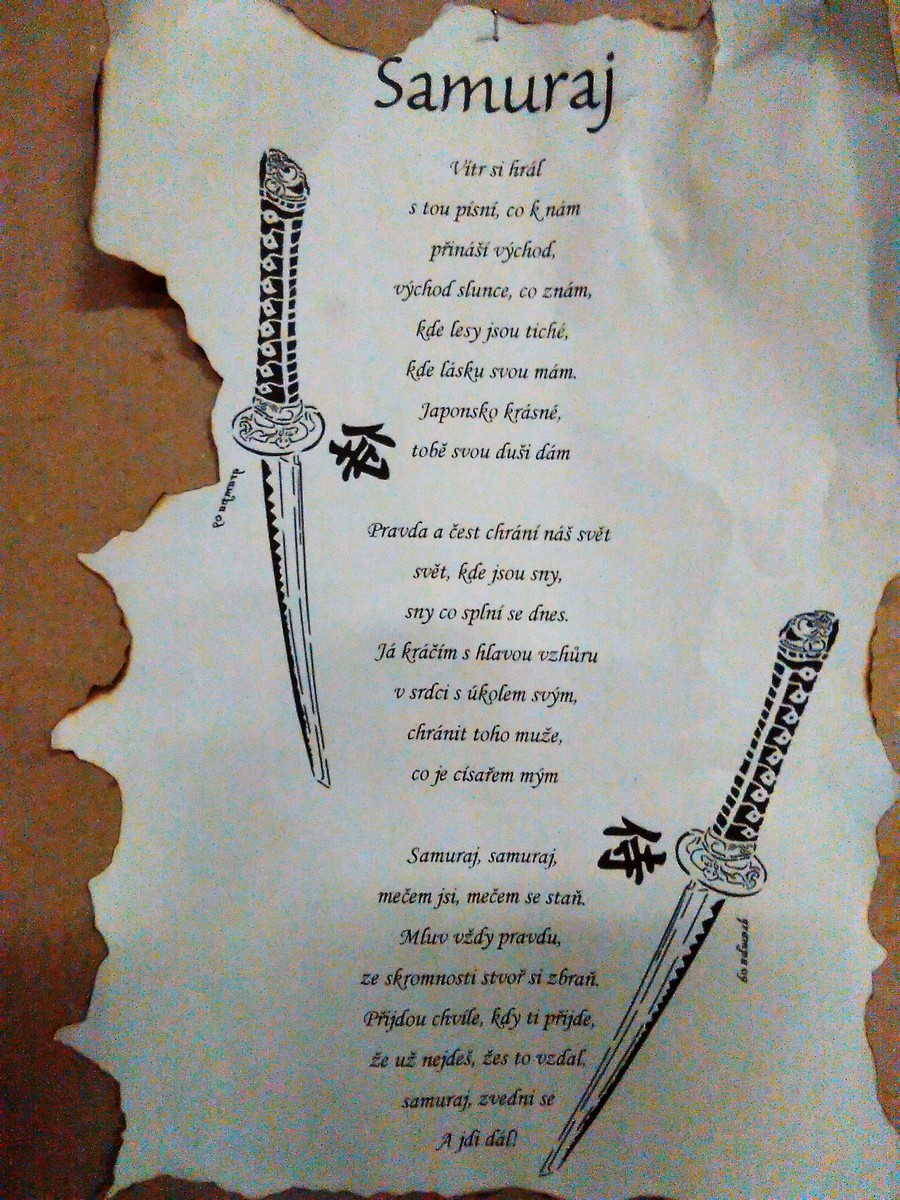 Samuraj
Vítr si hrál
s tou písní, co k nám
přináší východ,
východ slunce, co znám,
kde lesy jsou tiché,
kde lásku svou mám.
Japonsko krásné,
tobě svou duši dám
侍
Pravda a čest chrání náš svět
svět, kde jsou sny,
sny co splní se dnes.
Já kráčím s hlavou vzhůru
v srdci s úkolem svým,
chránit toho muže,
co je císařem mým
侍
Samuraj, samuraj,
mečem jsi, mečem se staň.
Mluv vždy pravdu,
ze skromnosti stvoř si zbraň.
Přijdou chvíle, kdy ti přijde,
že už nejdeš, žes to vzdal,
samuraj, zvedni se
A jdi dál!